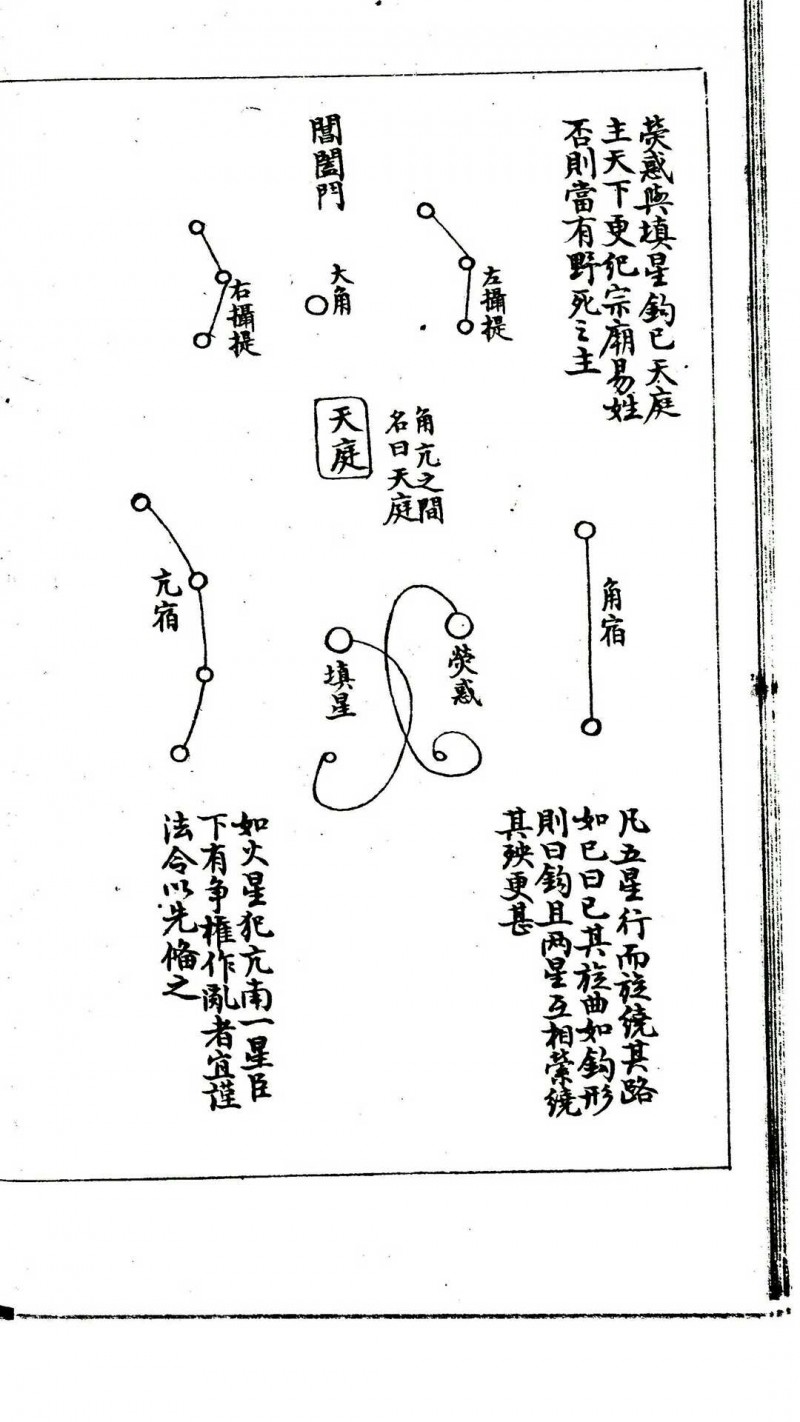 熒惑與填星鈎已天庭
主天下更紀宗廟易姓
否則當有野死之主
左攝提
閶闔門
大角
右攝提
角亢之間
名曰天庭
天庭
角宿
熒惑
填星
亢宿
凡五星行而旋繞其路
如已曰已其旋曲如鈎形
則曰鈎且两星互相縈繞
其殃更甚
如火星犯亢南一星臣
下有争權作亂者宜謹
法令以先備之